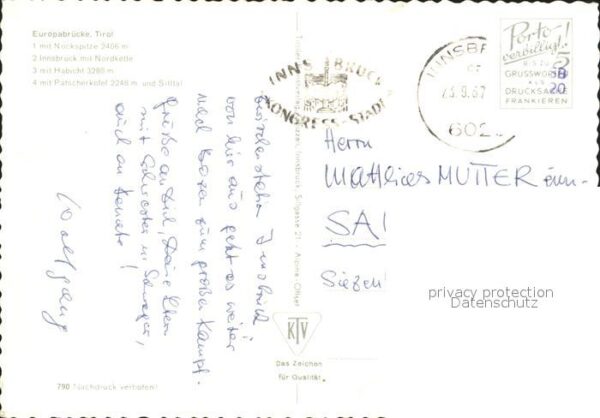 Europabrücke, Tirol
1 mit Nockspitze 2406 m
2 Innsbruck mit Nordkette
3 mit Habicht 3280 m
4 mit Patscherkofel 2248 m und Silltal
Zwischenstation Innsbruck
von hier aus geht es weiter
nach Bozen zum großen Kampf.
Grüße an Dich, Deine Eltern
mit Schwester u. Schwager,
auch an Renate!
Wolfgang
790 Nachdruck verboten!
Innsbruck, Sillgasse 21 - Alpina Offset
KTV
Das Zeichen
für Qualität
INNSBRUCK
KONGRESS-STADT
INNSBR
602
Porto
verbilligt!
BIS ZU
5
GRUSSWORTE
ALS
DRUCKSACHE
FRANKIEREN
Herrn
Matthias MUTTER
SA
Siegen
privacy protection
Datenschutz